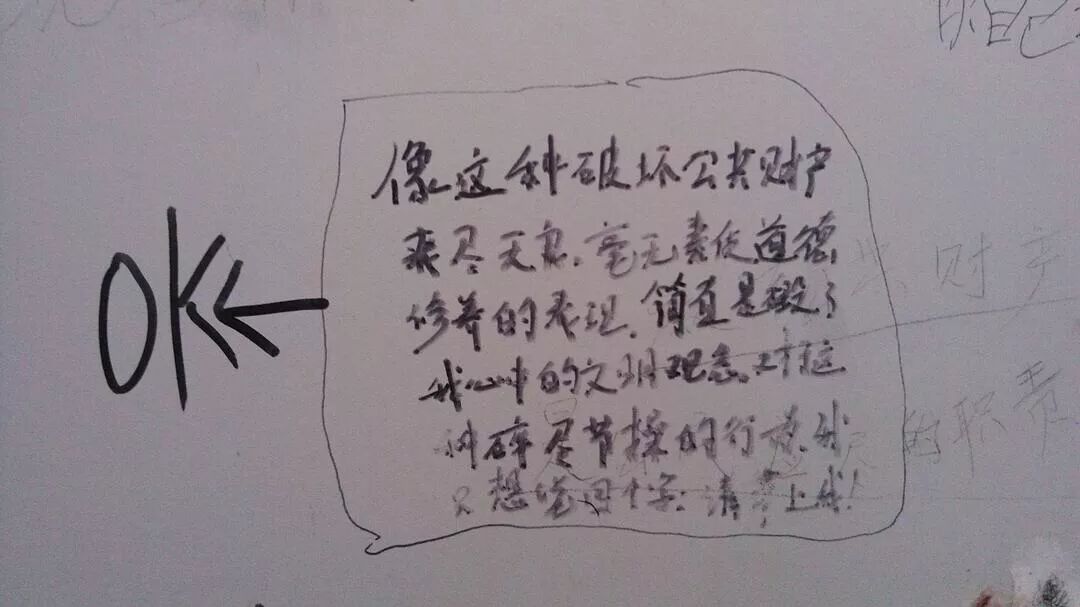 暗自己
像这种破坏公共财产
丧尽天良.毫无素质道德
修养的表现.简直是毁了
OK
我心中的文明观念.对这
种碎尽节操的行为.我
只想说四个字:请带上我!
共财产
的职责